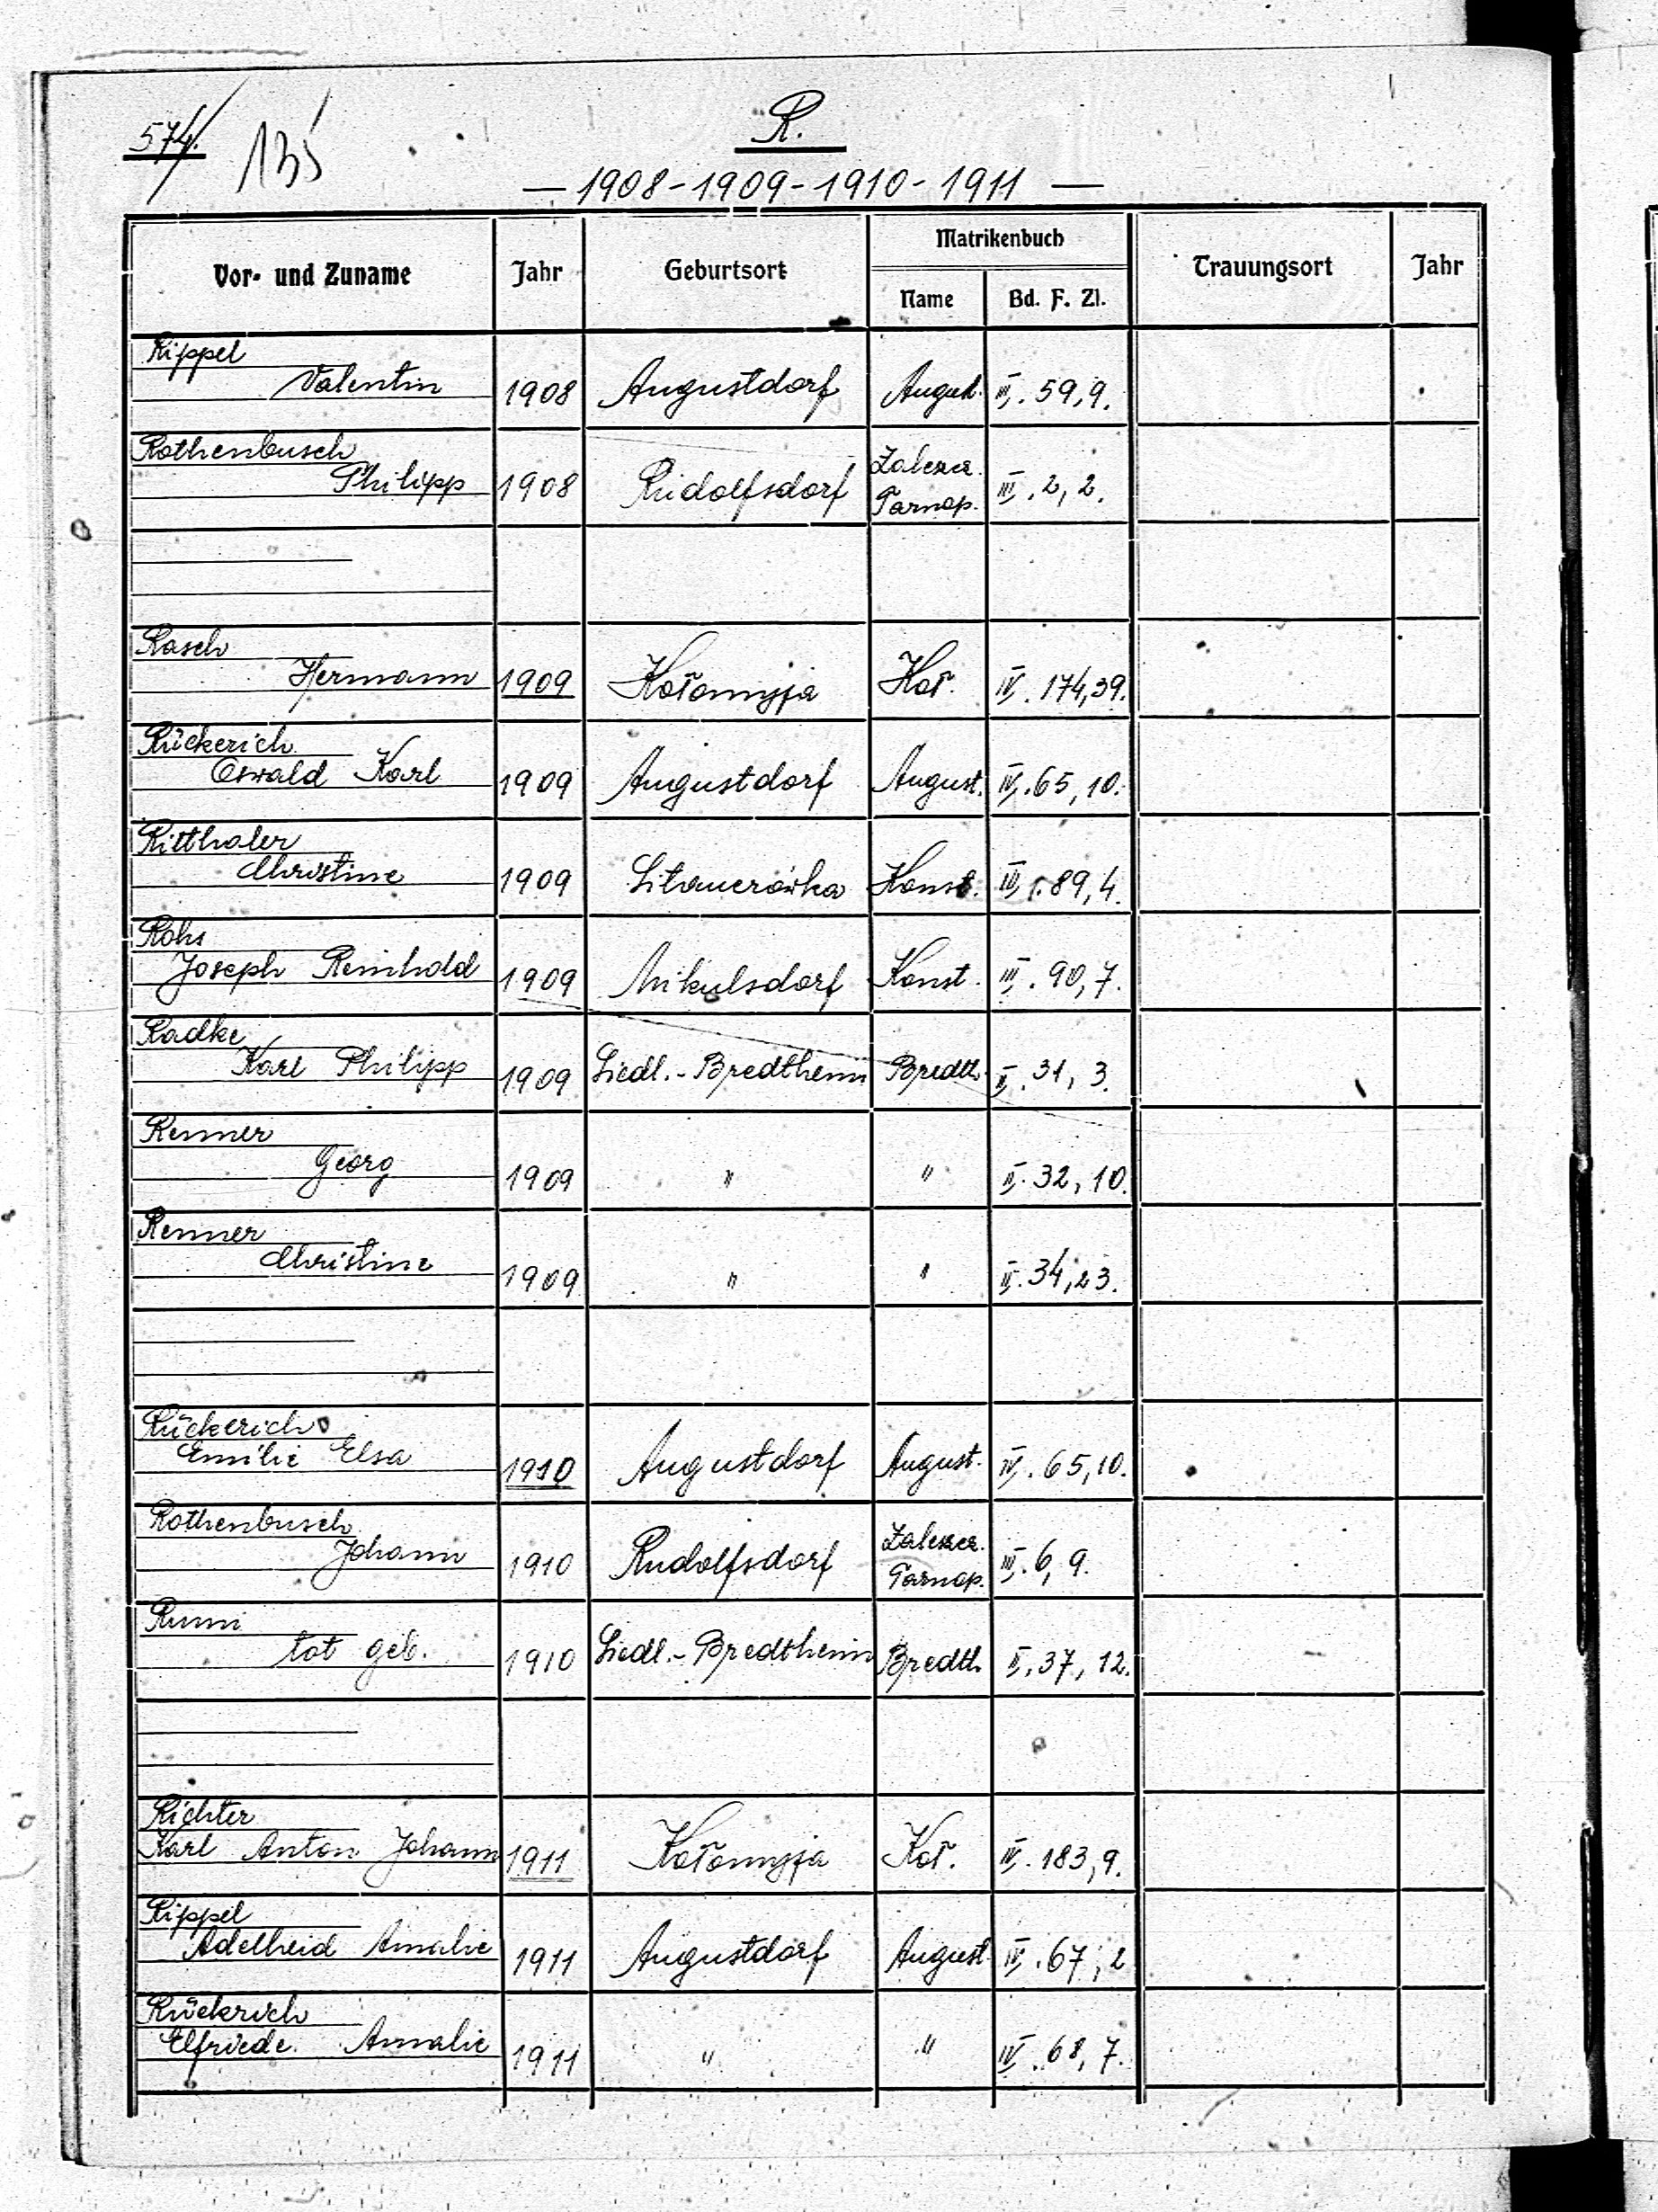 574. 135
R.
— 1908-1909-1910-1911 —
Vor- und Zuname Jahr Geburtsort Matrikenbuch Trauungsort Jahr
Name Bd. F. Zl.
Rippel
Valentin 1908 Augustdorf August. III. 59,9.
Rothenbusch Zaleszcz.
Philipp 1908 Rudolfsdorf Tarnop. III. 2, 2.
Rasch
Hermann 1909 Kołomyja Koł. IV. 174,39.
Rückerich
Oswald Karl 1909 Augustdorf August. IV. 65, 10.
Ritthaler
Christine 1909 Sitauerówka Konst. III. 89,4.
Rohs
Joseph Reinhold 1909 Mikulsdorf Konst. III. 90,7.
Radke
Karl Philipp 1909 Siedl.-Bredtheim Bredth. II. 31, 3.
Renner
Georg 1909 " " II. 32, 10.
Renner
Christine 1909 " " II. 34,23.
Rückerich
Emilie Elsa 1910 Augustdorf August. IV. 65,10.
Rothenbusch Zaleszcz.
Johann 1910 Rudolfsdorf Tarnop. III. 6, 9.
Rumi
tot geb. 1910 Siedl.-Bredtheim Bredth II. 37, 12.
Richter
Karl Anton Johann 1911 Kołomyja Koł. IV. 183,9.
Rippel
Adelheid Amalie 1911 Augustdorf August IV. 67, 2
Rückrich
Elfriede Amalie 1911 " " IV. 68, 7.